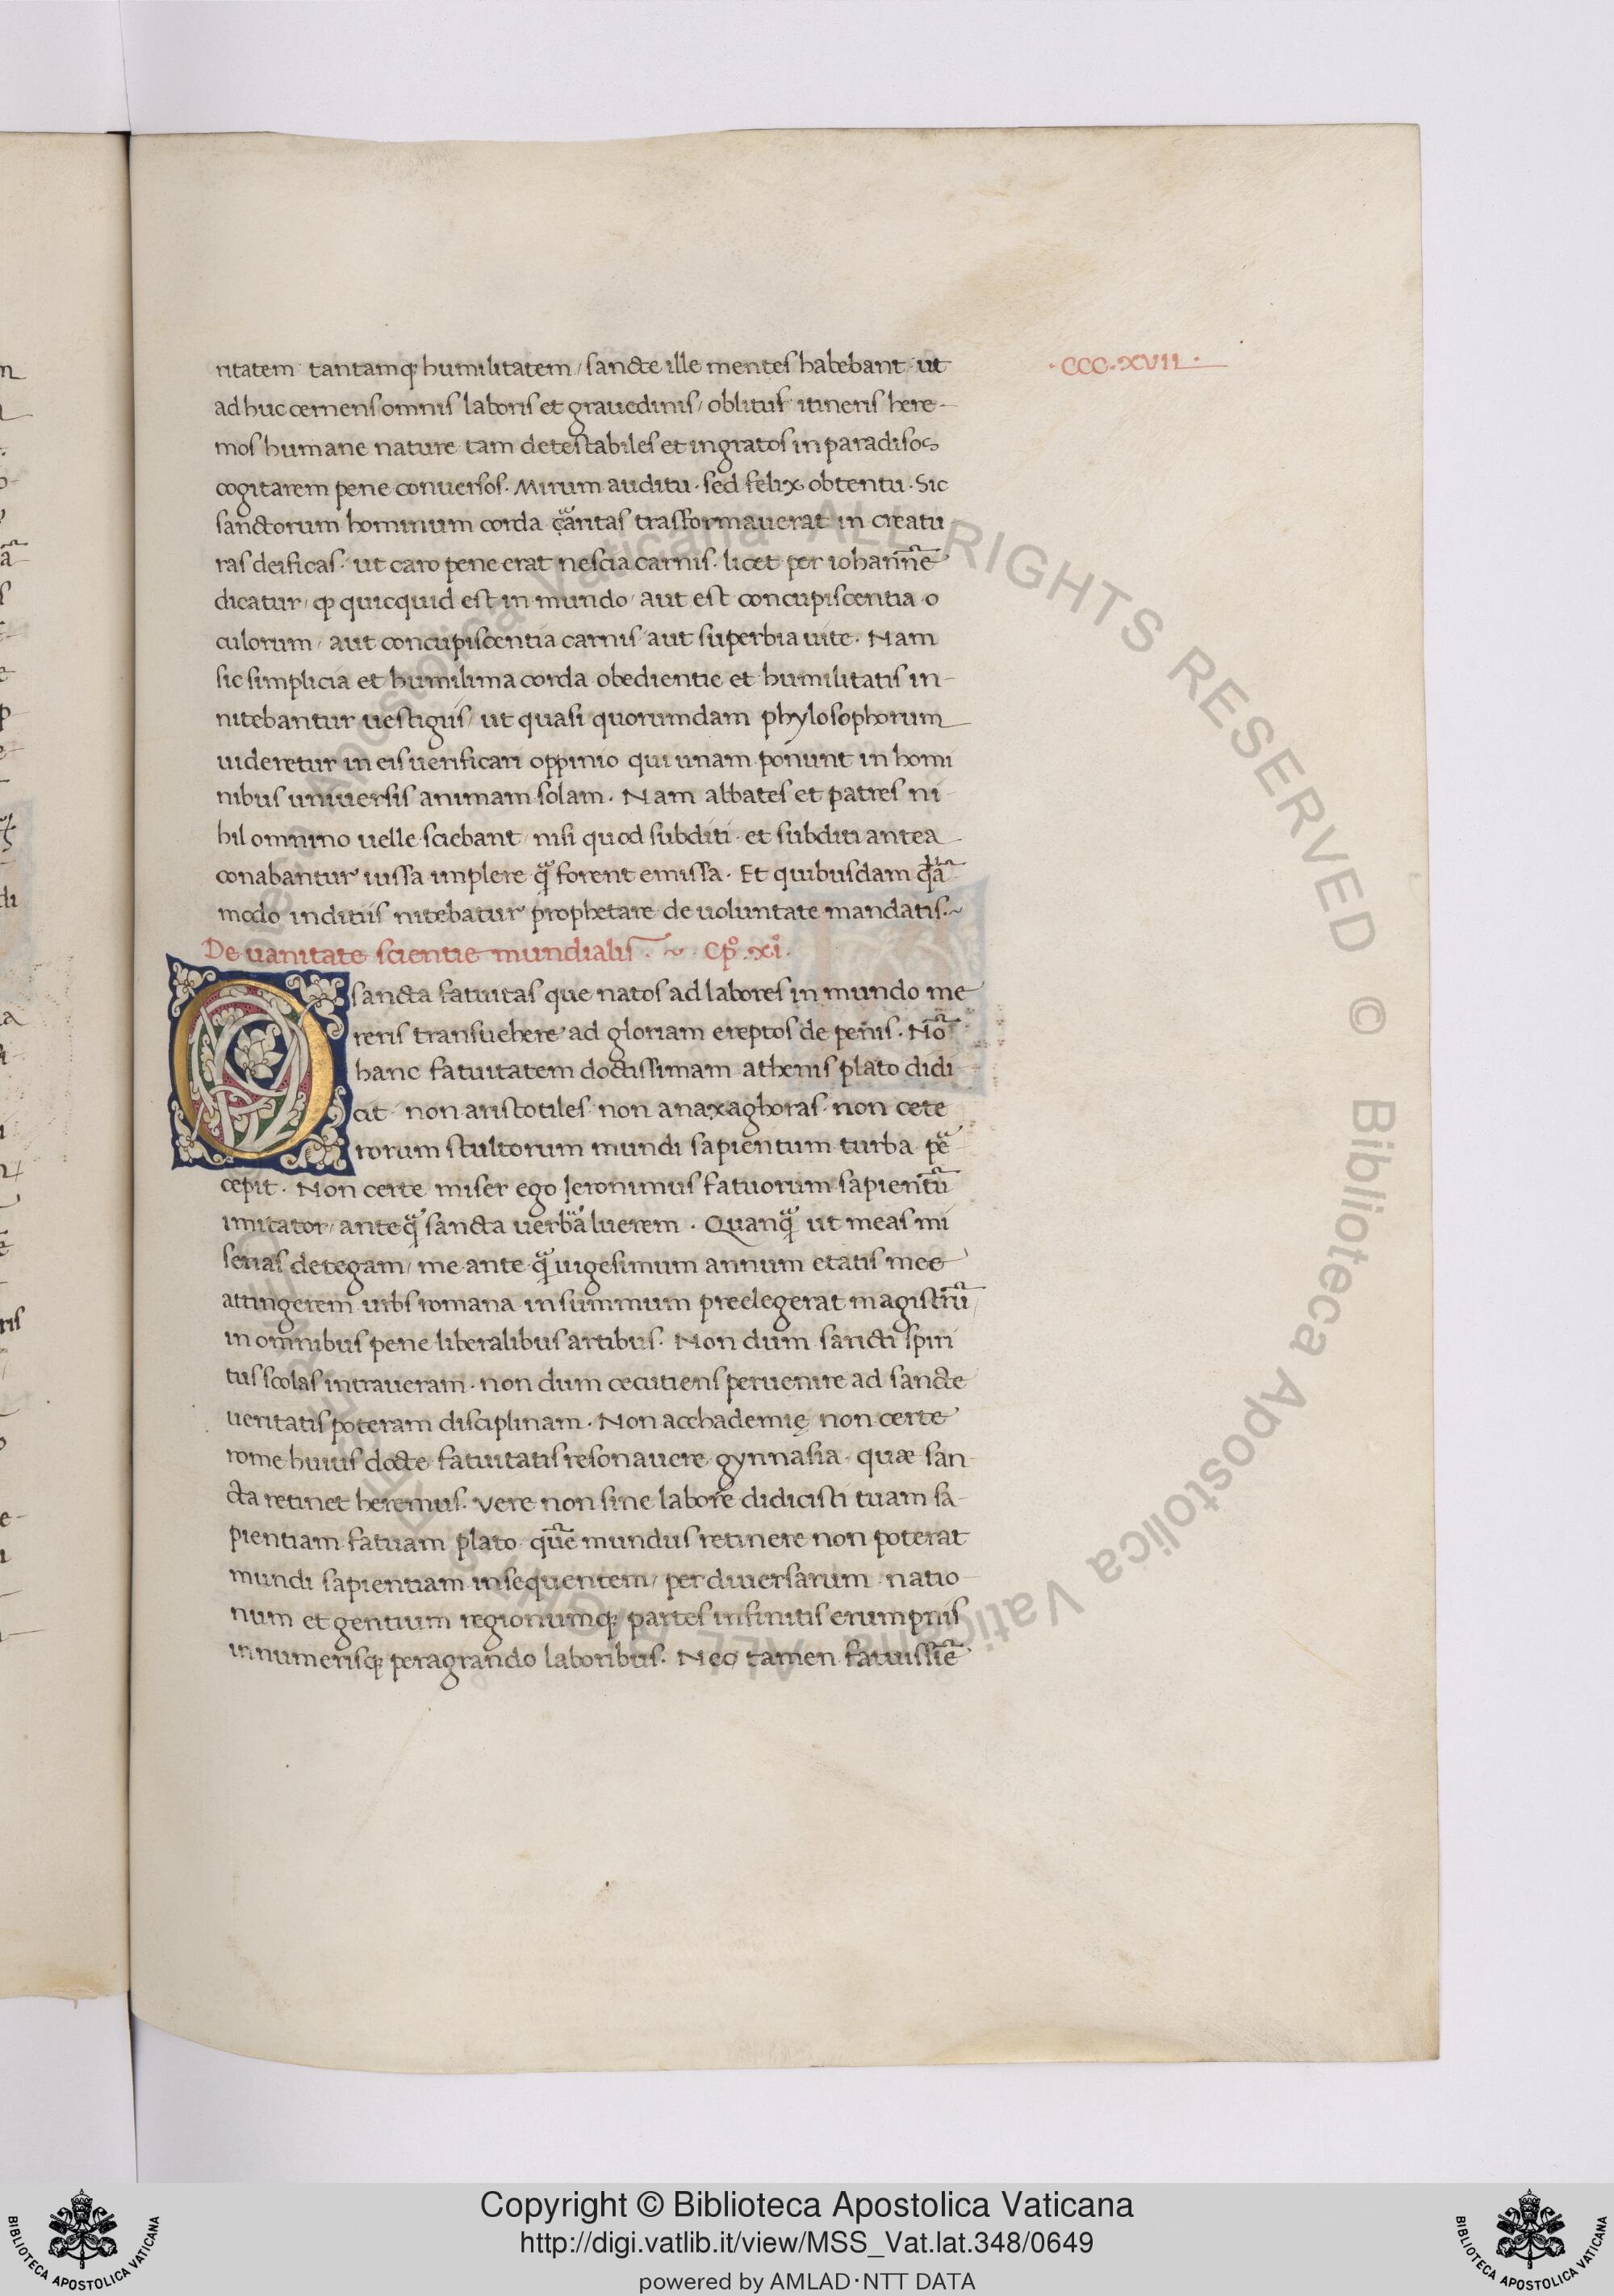 ritatem tantamq; humilitatem / sancte ille mentes habebant · ut
· CCC · XVII ·
ad huc cernens omnis laboris et grauedinis / oblitus itineris here-
mos humane nature tam detestabiles et ingratos in paradisos
cogitarem pene conuersos. Mirum auditu · sed felix obtentu · Sic
sanctorum hominum corda caritas trasformauerat in creatu
ras deificas · ut caro pene erat nescia carnis · licet per iohanē
dicatur / ꝙ quicquid est in mundo / aut est concupiscentia o
culorum / aut concupiscentia carnis / aut superbia uite. Nam
sic simplicia et humilima corda obedientie et humilitatis in-
nitebantur uestigiis / ut quasi quorumdam phylosophorum
uideretur in eis uerificari oppinio qui unam ponunt in homi
nibus uniuersis animam solam. Nam abbates et patres ni
hil omnino uelle sciebant / nisi quod subditi · et subditi antea
conabantur iussa implere q̃ forent emissa. Et quibusdam
modo inditiis nitebatur prophetare de uoluntate mandatis.~
De uanitate scientie mundialis. ~ Cpº. xiº.
O sancta fatuitas que natos ad labores in mundo me
reris transuehere ad gloriam ereptos de penis. Nō
hanc fatuitatem doctissimam athenis plato didi
cit · non aristotiles · non anaxaghoras · non cete
rorum stultorum mundi sapientum turba · p̄e
cepit. Non certe miser ego Jeronimus fatuorum sapientū
imitator / ante q̃ sancta uerba luerem. Quanq̃ ut meas mi
serias detegam / me ante q̃ uigesimum annum etatis mee
attingerem urbs romana in summum preelegerat magistrū /
in omnibus pene liberalibus artibus. Non dum sancti spiri
tus scolas intraueram · non dum cecutiens peruenire ad sancte
ueritatis poteram disciplinam. Non acchademię non certe
rome huius docte fatuitatis resonauere gynnasia · quæ san
cta retinet heremus. Vere non sine labore didicisti tuam sa-
pientiam fatuam plato · quē mundus retinere non poterat
mundi sapientiam insequentem / per diuersarum natio
num et gentium regionumq; partes infinitis erumpnis
innumerisq; peragrando laboribus. Nec tamen
Biblioteca Apostolica Vaticana ALL RIGHTS RESERVED ©
Copyright © Biblioteca Apostolica Vaticana
http://digi.vatlib.it/view/MSS_Vat.lat.348/0649
powered by AMLAD·NTT DATA
BIBLIOTECA APOSTOLICA VATICANA
BIBLIOTECA APOSTOLICA VATICANA